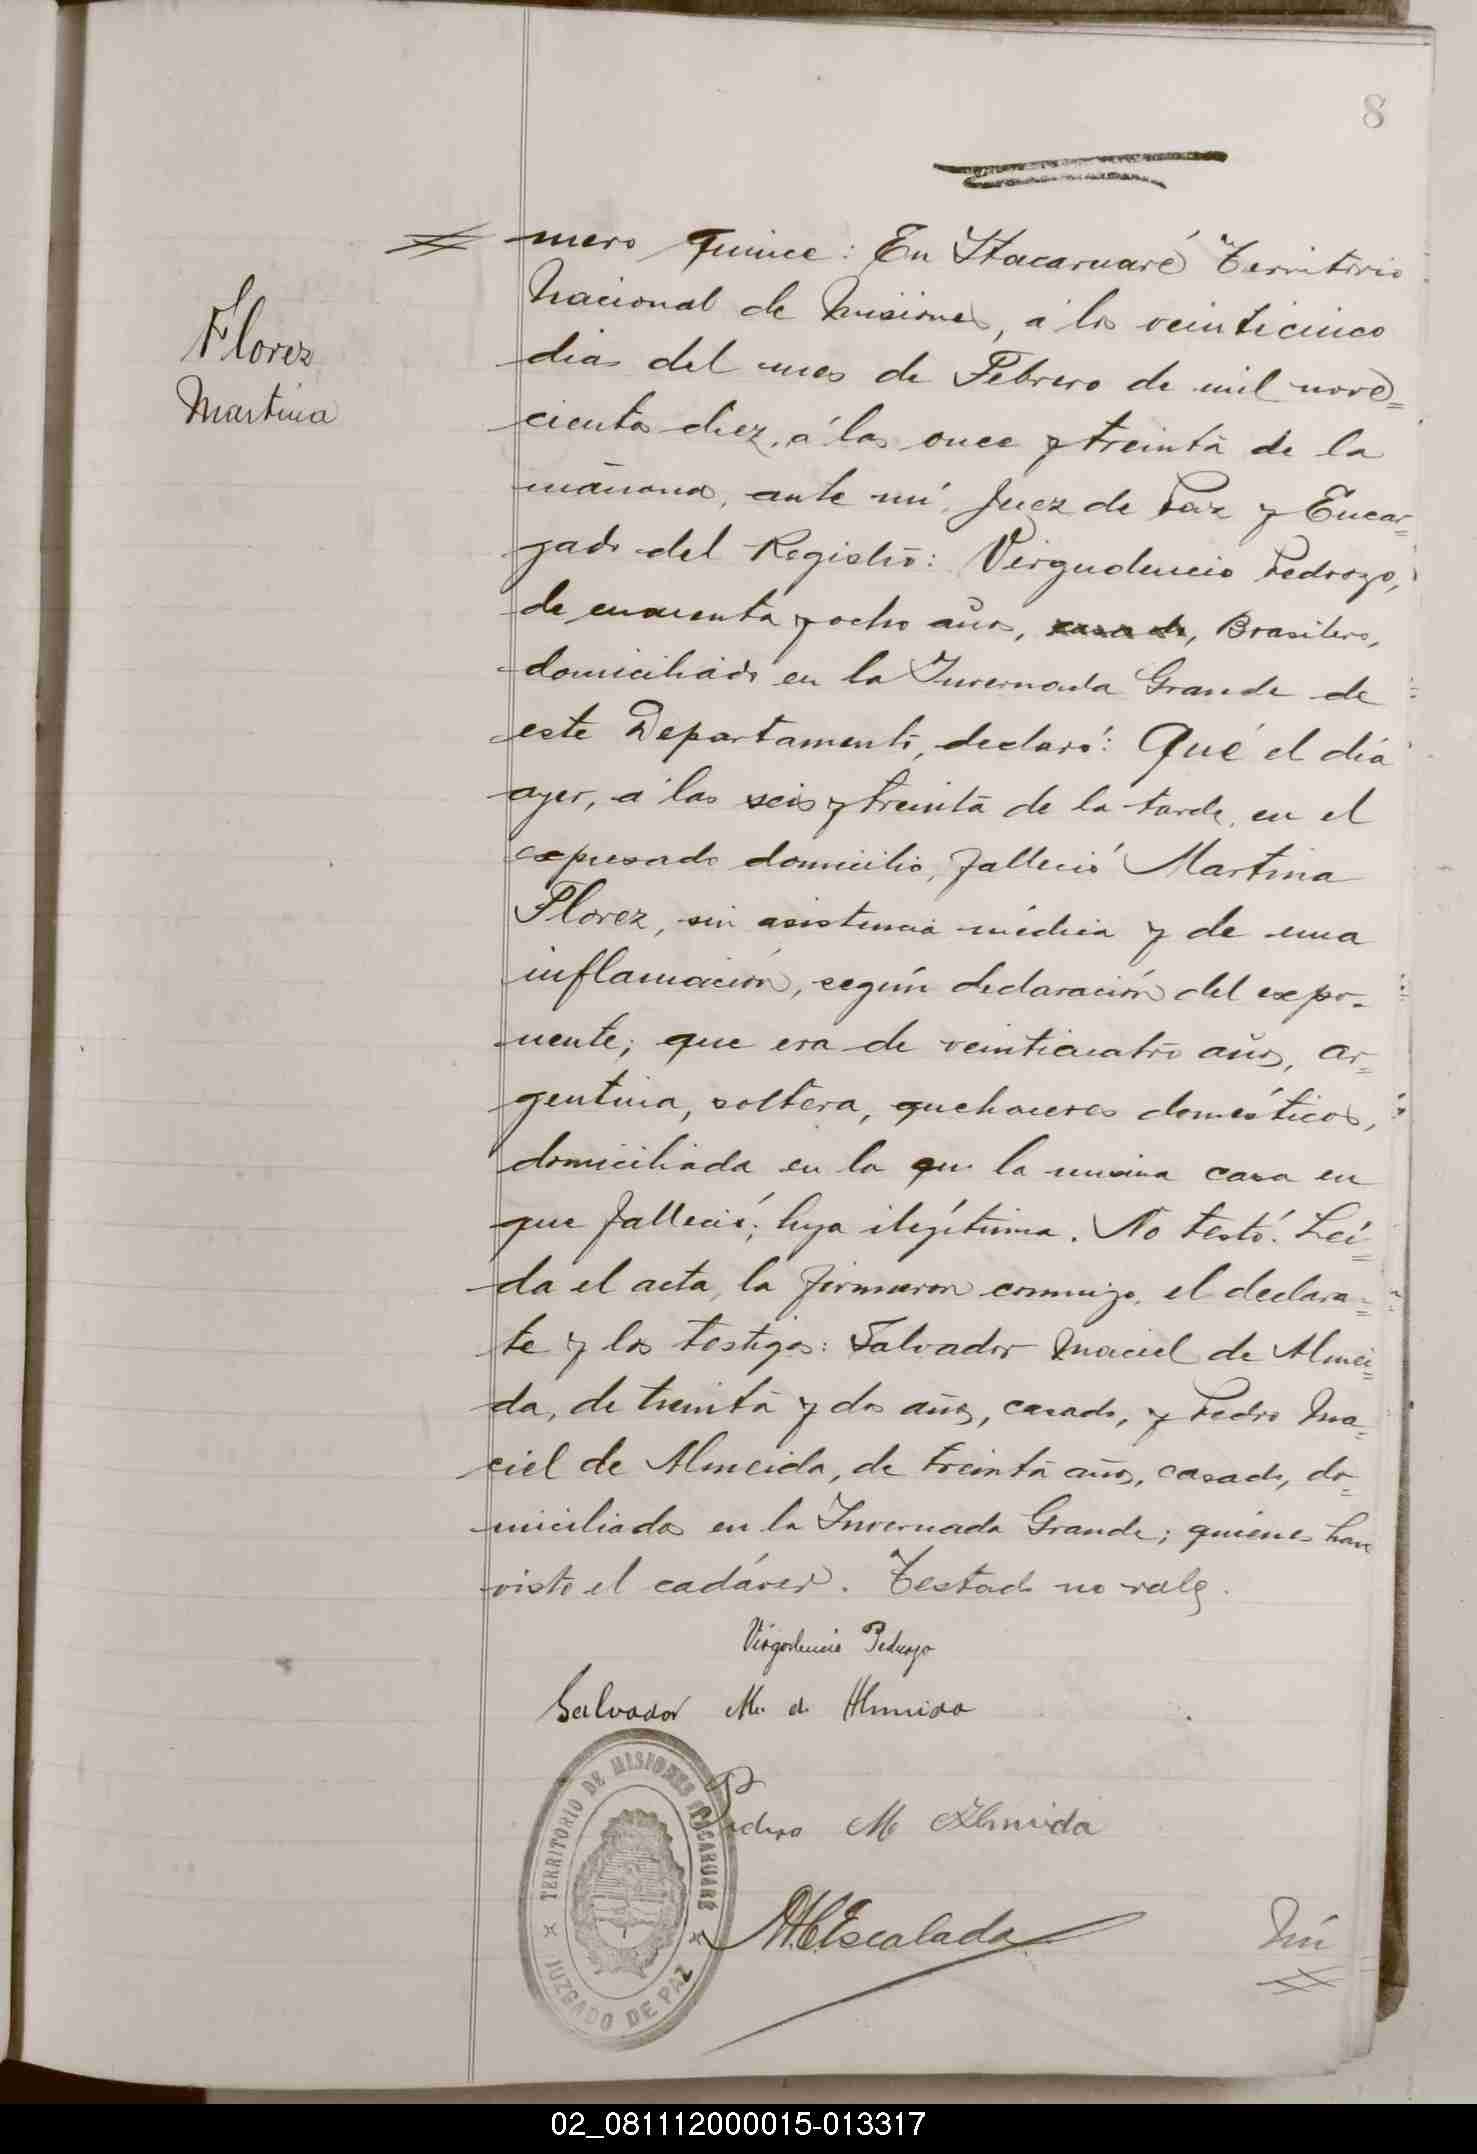 8
mero quince: En Itacaruaré Territorio
Flores
Martina
Nacional de Misiones, á los veinticinco
dias del mes de Febrero de mil nove=
cientos diez, á las once y treinta de la
mañana, ante mí, Juez de Paz y Encar=
gado del Registro: Virgudencio Pedrozo,
de cuarenta y ocho años, casado, Brasilero,
domiciliado en la Invernada Grande de
este Departamento, declaró: Qué el día
ayer, á las seis y treinta de la tarde, en el
expresado domicilio, falleció Martina
Florez, sin asistencia médica y de una
inflamación, según declaración del expo=
nente; que era de veinticuatro años, ar=
gentina, soltera, quehaceres domésticos,
domiciliada en la que la misma casa en
que falleció; hija ilegítima. No testó. Leí=
da el acta, la firmaron conmigo, el declara=
te y los testigos: Salvador Maciel de Almei=
da, de treinta y dos años, casado, y Pedro Ma=
ciel de Almeida, de treinta años, casado, do=
miciliados en la Invernada Grande; quienes han
visto el cadáver. Testado no vale.
Virgudencio Pedrozo
Salvador M. de Almeida
Pedro M Almeida
TERRITORIO DE MISIONES ITACARUARÉ
JUZGADO DE PAZ
Escalada
Nú
02_081112000015-013317